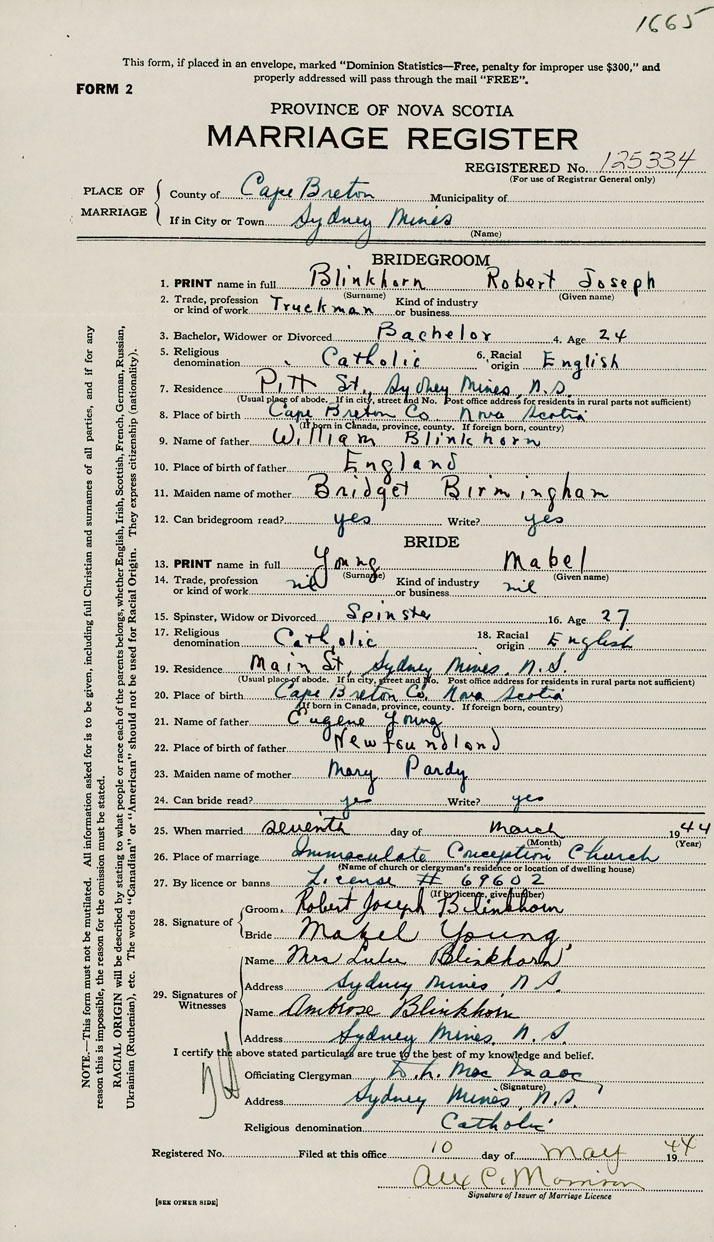 1665
This form, if placed in an envelope, marked "Dominion Statistics—Free, penalty for improper use $300," and
properly addressed will pass through the mail "FREE".
FORM 2
PROVINCE OF NOVA SCOTIA
MARRIAGE REGISTER
REGISTERED No. 125334
(For use of Registrar General only)
PLACE OF MARRIAGE
County of Cape Breton Municipality of
If in City or Town Sydney Mines
(Name)
BRIDEGROOM
1. PRINT name in full Blinkhorn Robert Joseph
(Surname) (Given name)
2. Trade, profession or kind of work Truckman Kind of industry or business
3. Bachelor, Widower or Divorced Bachelor 4. Age 24
5. Religious denomination Catholic 6. Racial origin English
7. Residence Pitt St., Sydney Mines, N.S.
(Usual place of abode. If in city, street and No. Post office address for residents in rural parts not sufficient)
8. Place of birth Cape Breton Co Nova Scotia
(If born in Canada, province, county. If foreign born, country)
9. Name of father William Blinkhorn
10. Place of birth of father England
11. Maiden name of mother Bridget Birmingham
12. Can bridegroom read? yes Write? yes
BRIDE
13. PRINT name in full Young Mabel
(Surname) (Given name)
14. Trade, profession or kind of work nil Kind of industry or business nil
15. Spinster, Widow or Divorced Spinster 16. Age 27
17. Religious denomination Catholic 18. Racial origin English
19. Residence Main St, Sydney Mines, N.S.
(Usual place of abode. If in city, street and No. Post office address for residents in rural parts not sufficient)
20. Place of birth Cape Breton Co, Nova Scotia
(If born in Canada, province, county. If foreign born, country)
21. Name of father Eugene Young
22. Place of birth of father Newfoundland
23. Maiden name of mother Mary Pardy
24. Can bride read? yes Write? yes
25. When married seventh day of March 1944
(Month) (Year)
26. Place of marriage Immaculate Conception Church
(Name of church or clergyman's residence or location of dwelling house)
27. By licence or banns License # 69602
(If by licence, give number)
28. Signature of
Groom Robert Joseph Blinkhorn
Bride Mabel Young
29. Signatures of Witnesses
Name Mrs Lulu Blinkhorn
Address Sydney Mines N S.
Name Ambrose Blinkhorn
Address Sydney Mines, N. S.
I certify the above stated particulars are true to the best of my knowledge and belief.
Officiating Clergyman Mac Isaac
(Signature)
Address Sydney Mines, N.S.
Religious denomination Catholic
Registered No. Filed at this office 10 day of May 1944
Alex C. Morrison
Signature of Issuer of Marriage Licence
[SEE OTHER SIDE]
NOTE.—This form must not be mutilated. All information asked for is to be given, including full Christian and surnames of all parties, and if for any
reason this is impossible, the reason for the omission must be stated.
RACIAL ORIGIN will be described by stating to what people or race each of the parents belongs, whether English, Irish, Scottish, French, German, Russian,
Ukrainian (Ruthenian), etc. The words "Canadian" or "American" should not be used for Racial Origin. They express citizenship (nationality).